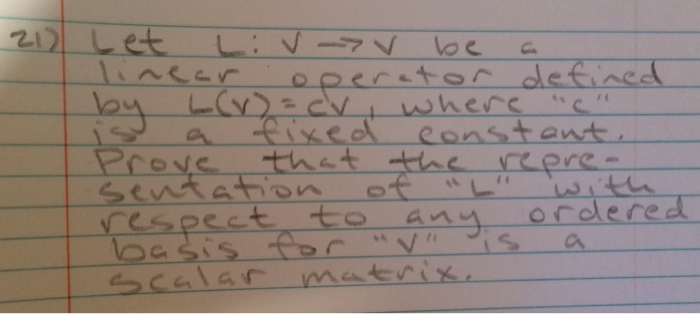 21) Let L: V → V be a
linear operator defined
by L(v)=cv, where "c"
is a fixed constant.
Prove that the repre-
sentation of "L" with
respect to any ordered
basis for "V" is a
scalar matrix.